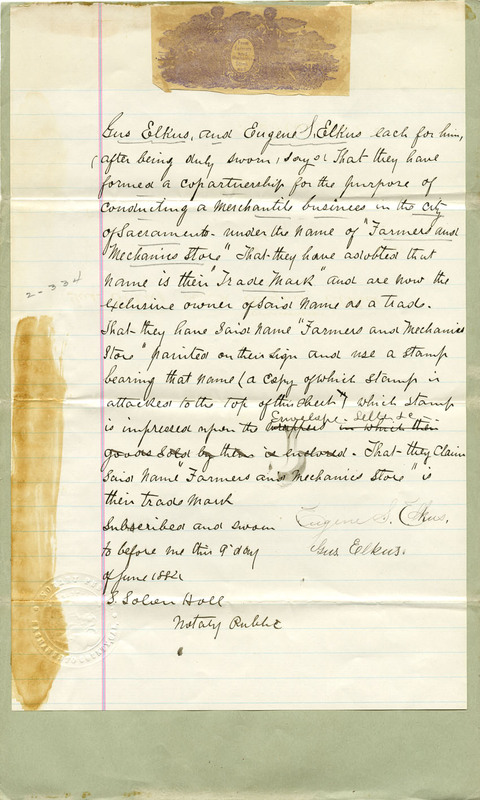 Gus Elkus, and Eugene S. Elkus each for him,
after being duly sworn, says: That they have
formed a copartnership for the purpose of
conducting a Merchantile business in the city
of Sacramento - under the name of "Farmers and
Mechanics Store" That they have adopted that
name is their "Trade Mark" and are now the
exclusive owner of said name as a trade.
That they have said name "Farmers and Mechanics
Store" painted on their sign and use a stamp
bearing that name (a copy of which stamp is
attached to the top of this sheet) which stamp
Envelope - Bills &c
is impressed upon the wrapper in which their
goods sold by them is enclosed. That they Claim
said name "Farmers and Mechanics Store" is
their trade mark
Subscribed and sworn Eugene S. Elkus.
to before me this 9" day Gus Elkus.
of June 1882
S. Solon Holl
Notary Public
2-334